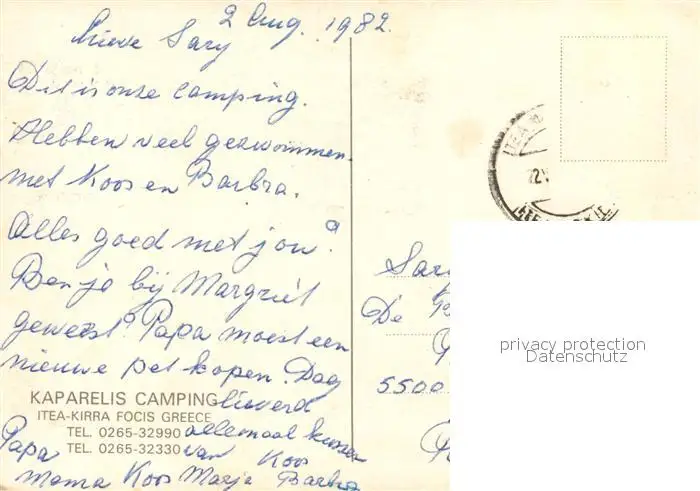 2 Aug. 1982.
Lieve Sary
Dit is onze camping.
Hebben veel gezwommen
met Koos en Barbra.
Alles goed met jou?
Ben je bij Margriet
geweest? Papa moest een
nieuwe pet kopen. Dag
lieverd
allemaal kussen
van Koos
Papa
Mama Koos Marja Barbra
KAPARELIS CAMPING
ITEA-KIRRA FOCIS GREECE
TEL. 0265-32990
TEL. 0265-32330
ITEA
Sary
De
5500
privacy protection
Datenschutz